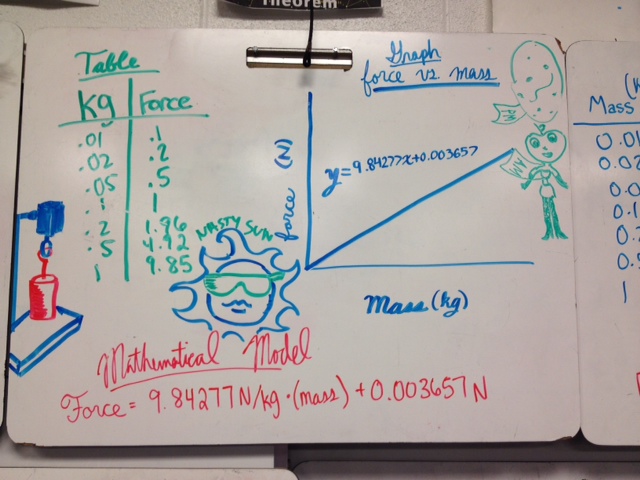 Theorem
Table
Kg Force
.01 .1
.02 .2
.05 .5
.1 1
.2 1.96
.5 4.92
1 9.85
NASTY SUN
Graph
force vs mass
force (N)
y=9.84277x+0.003657
Mass (kg)
Mathematical Model
Force = 9.84277 N/kg · (mass) + 0.003657 N
Mass
0.01
1